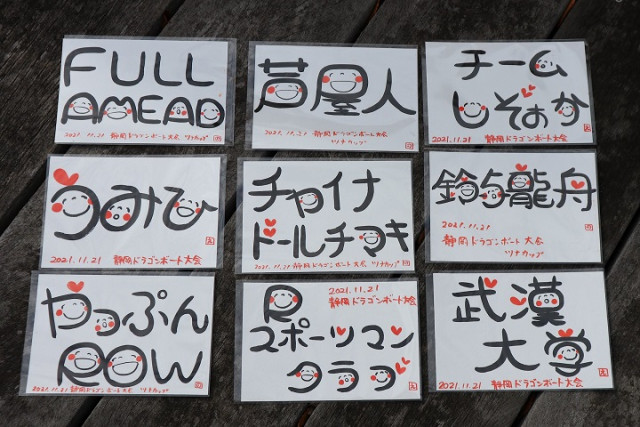 FULL
AMEAD
2021.11.21 静岡ドラゴンボート大会 ツナカップ
芦屋人
2021.11.21 静岡ドラゴンボート大会 ツナカップ
チーム
しぞぉか
2021.11.21 静岡ドラゴンボート大会
うみひ
2021.11.21 静岡ドラゴンボート大会
チャイナ
ドールチマキ
2021.11.21 静岡ドラゴンボート大会 ツナカップ
鈴与龍舟
2021.11.21
静岡ドラゴンボート大会
ツナカップ
やっぷん
ROW
2021.11.21 静岡ドラゴンボート大会 ツナカップ
R
2021.11.21
静岡ドラゴンボート大会
スポーツマン
クラブ
武漢
大学
2021.11.21 静岡ドラゴンボート大会